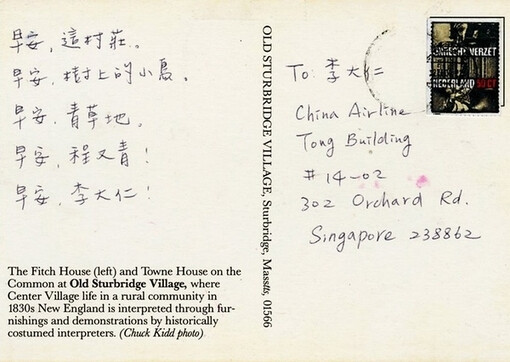 早安，這村莊。
早安，樹上的小鳥。
早安，青草地。
早安，程又青！
早安，李大仁！
The Fitch House (left) and Towne House on the
Common at Old Sturbridge Village, where
Center Village life in a rural community in
1830s New England is interpreted through fur-
nishings and demonstrations by historically
costumed interpreters. (Chuck Kidd photo)
OLD STURBRIDGE VILLAGE, Sturbridge, Masstts, 01566
To: 李大仁
China Airline
Tong Building
#14-02
302 Orchard Rd.
Singapore 238862
VERZET
NEDERLAND 50 CT